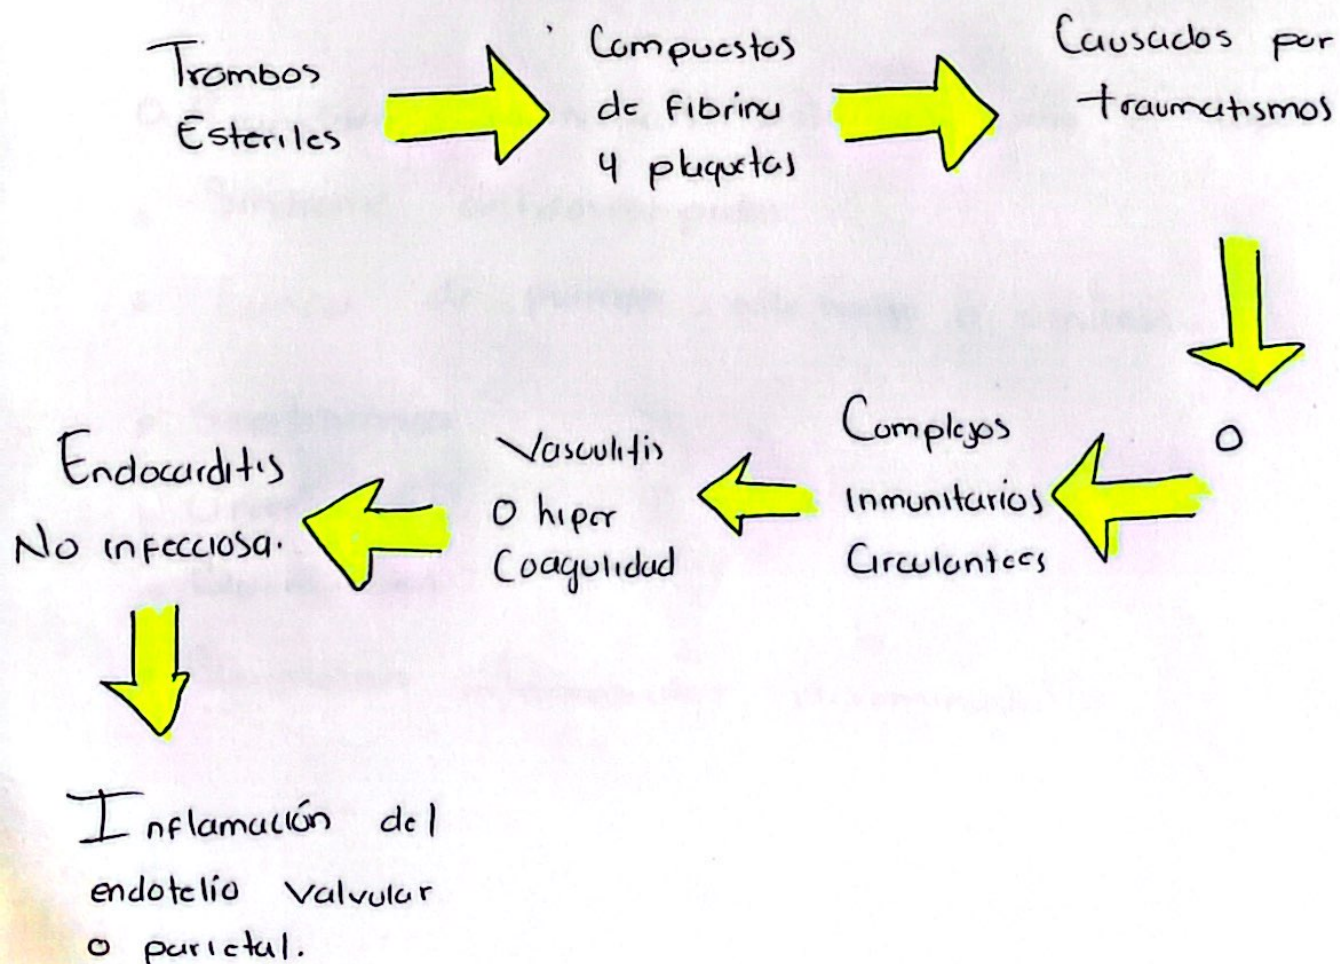 Trombos
Esteriles
Compuestos
de fibrina
y plaquetas
Causados por
traumatismos
o
Complejos
inmunitarios
Circulantees
Vasculitis
O hiper
Coagulidad
Endocarditis
No infecciosa.
Inflamación del
endotelio valvular
o parietal.